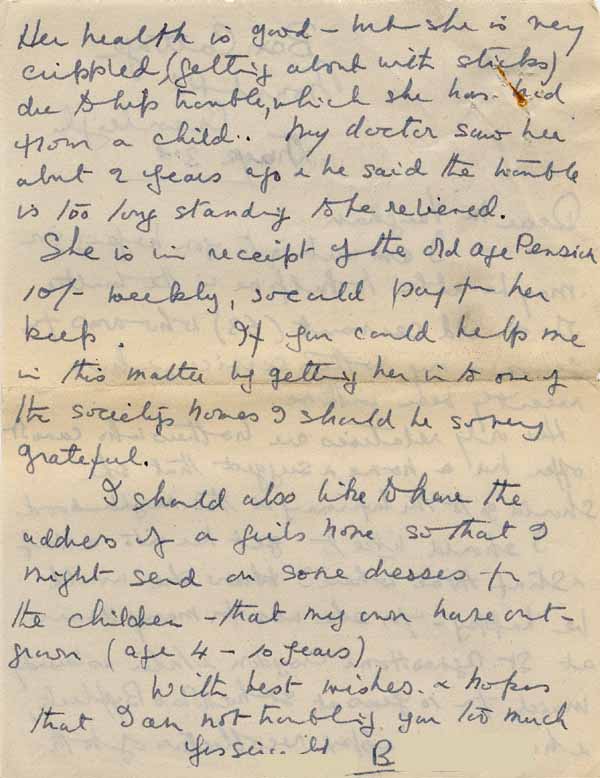 Her health is good – but she is very
crippled, (getting about with sticks)
due to hip trouble, which she has had
from a child.. My doctor saw her
about 2 years ago & he said the trouble
is too long standing to be relieved.
She is in receipt of the old age Pension
10/- weekly, so could pay for her
keep. If you could help me
in this matter by getting her in to one of
the societys homes I should be so very
grateful.
I should also like to have the
address of a girls home so that I
might send on some dresses for
the children – that my own have out-
grown (age 4 – 10 years)
With best wishes. & hopes
that I am not troubling you too much
B